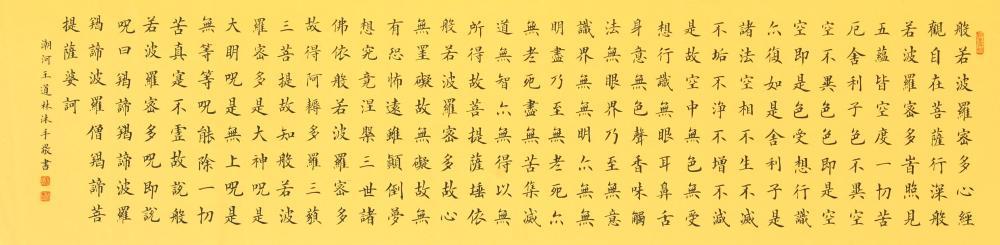 般若波羅密多心經
觀自在菩薩行深般
若波羅密多旹照見
五蘊皆空度一切苦
厄舍利子色不異空
空不異色色即是空
空即是色受想行識
亦復如是舍利子是
諸法空相不生不滅
不垢不淨不增不減
是故空中無色無受
想行識無眼耳鼻舌
身意無色聲香味觸
法無眼界乃至無意
識界無無明亦無無
明盡乃至無老死亦
無老死盡無苦集滅
道無智亦無得以無
所得故菩提薩埵依
般若波羅密多故心
無罣礙故無礙故無
有恐怖遠離顛倒夢
想究竟涅槃三世諸
佛依般若波羅密多
故得阿耨多羅三藐
三菩提故知般若波
羅密多是大神呪是
大明呪是無上呪是
無等等呪能除一切
苦真寔不虛故說般
若波羅密多呪即說
呪曰揭諦揭諦波羅
揭諦波羅僧揭諦菩
提薩婆訶
潮河王道林沐手敬書